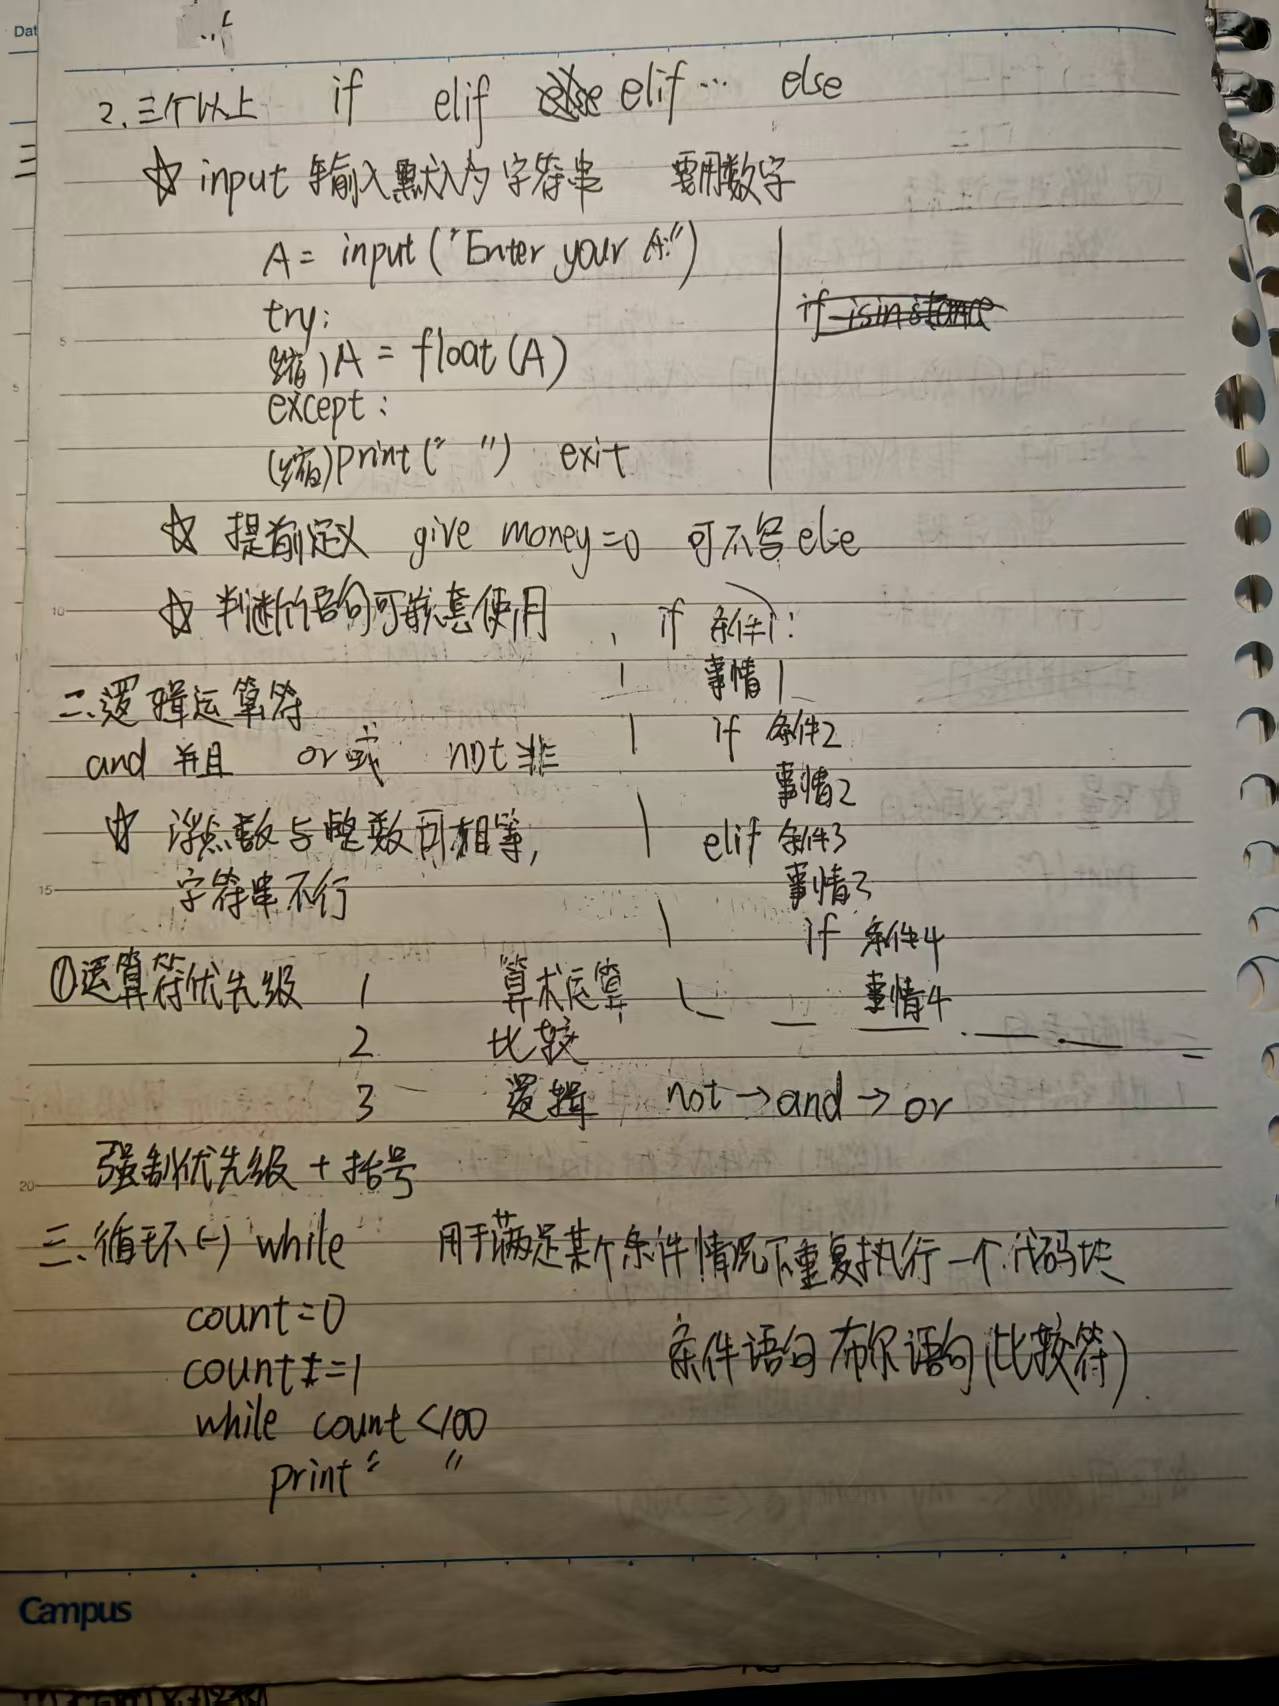 Dat
三
2. 三个以上 if elif elif … else
☆ input 输入默认为字符串 要用数字
A = input ("Enter your A:")
try:
缩) A = float (A)
except:
(缩) print (" ") exit
if isinstance
☆ 提前定义 give money=0 可不写 else
☆ 判断语句可嵌套使用
if 条件1:
事情1
if 条件2
事情2
elif 条件3
事情3
if 条件4
事情4
二、逻辑运算符
and 并且 or 或 not 非
☆ 浮点数与整数可相等,
字符串不行
①运算符优先级 1 算术运算
2 比较
3 逻辑 not → and → or
强制优先级 + 括号
三、循环 (一) while 用于满足某个条件情况下重复执行一个代码块
count=0
count+=1
while count <100
print " "
条件语句 布尔语句 (比较符)
5
10
15
20
Campus